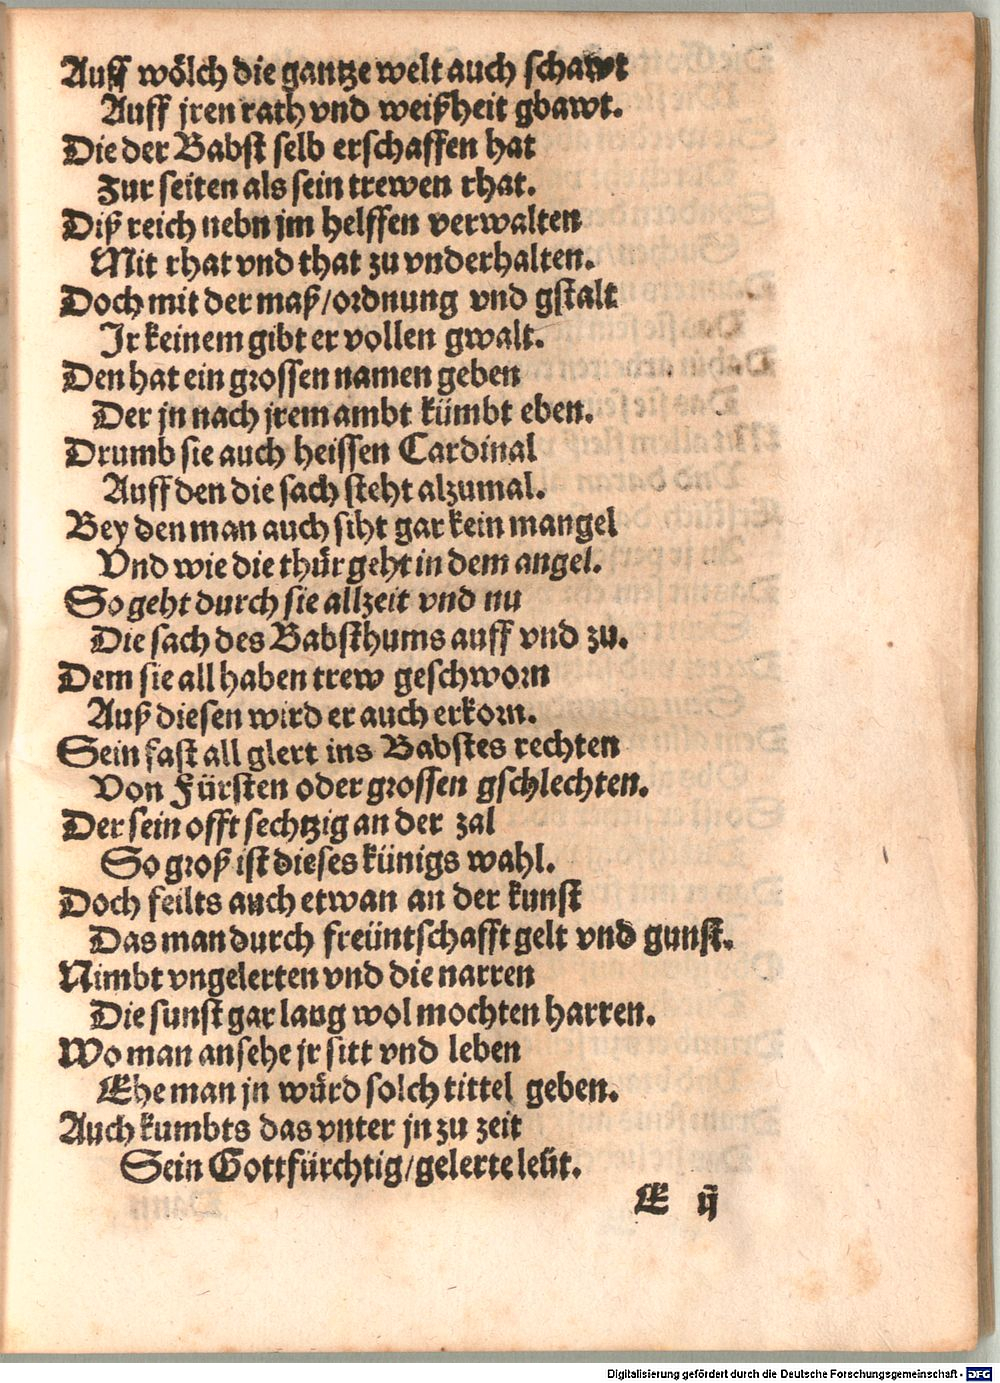 Auff wölch die gantze welt auch schawt
Auff jren rath vnd weißheit gbawt.
Die der Babst selb erschaffen hat
Zur seiten als sein trewen rhat.
Diß reich nebn jm helffen verwalten
Mit rhat vnd that zu vnderhalten.
Doch mit der maß/ordnung vnd gstalt
Jr keinem gibt er vollen gwalt.
Den hat ein grossen namen geben
Der jn nach jrem ambt kümbt eben.
Drumb sie auch heissen Cardinal
Auff den die sach steht alzumal.
Bey den man auch siht gar kein mangel
Vnd wie die thür geht in dem angel.
So geht durch sie allzeit vnd nu
Die sach des Babsthums auff vnd zu.
Dem sie all haben trew geschworn
Auß diesen wird er auch erkorn.
Sein fast all glert ins Babstes rechten
Von Fürsten oder grossen gschlechten.
Der sein offt sechtzig an der zal
So groß ist dieses künigs wahl.
Doch feilts auch etwan an der kunst
Das man durch freüntschafft gelt vnd gunst.
Nimbt vngelerten vnd die narren
Die sunst gar lang wol mochten harren.
Wo man ansehe jr sitt vnd leben
Ehe man jn würd solch tittel geben.
Auch kumbts das vnter jn zu zeit
Sein Gottfürchtig/gelerte leüt.
E ij
Digitalisierung gefördert durch die Deutsche Forschungsgemeinschaft - DFG